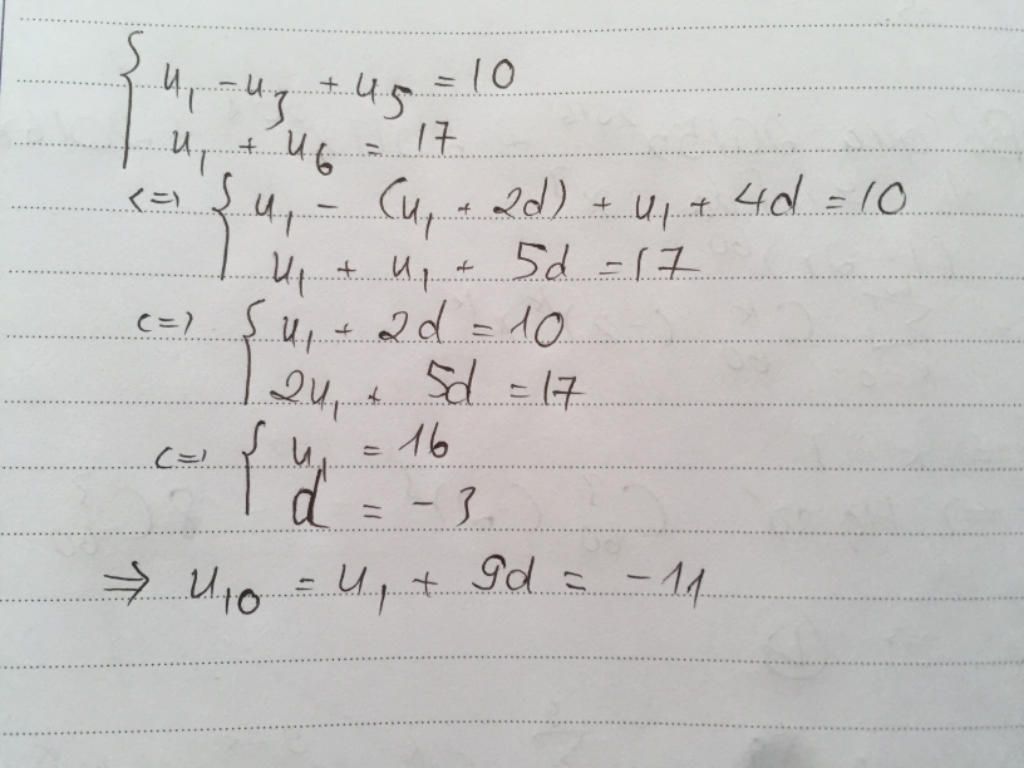 { u₁ - u₃ + u₅ = 10
u₁ + u₆ = 17
<=> { u₁ - (u₁ + 2d) + u₁ + 4d = 10
u₁ + u₁ + 5d = 17
<=> { u₁ + 2d = 10
2u₁ + 5d = 17
<=> { u₁ = 16
d = -3
⇒ u₁₀ = u₁ + 9d = -11